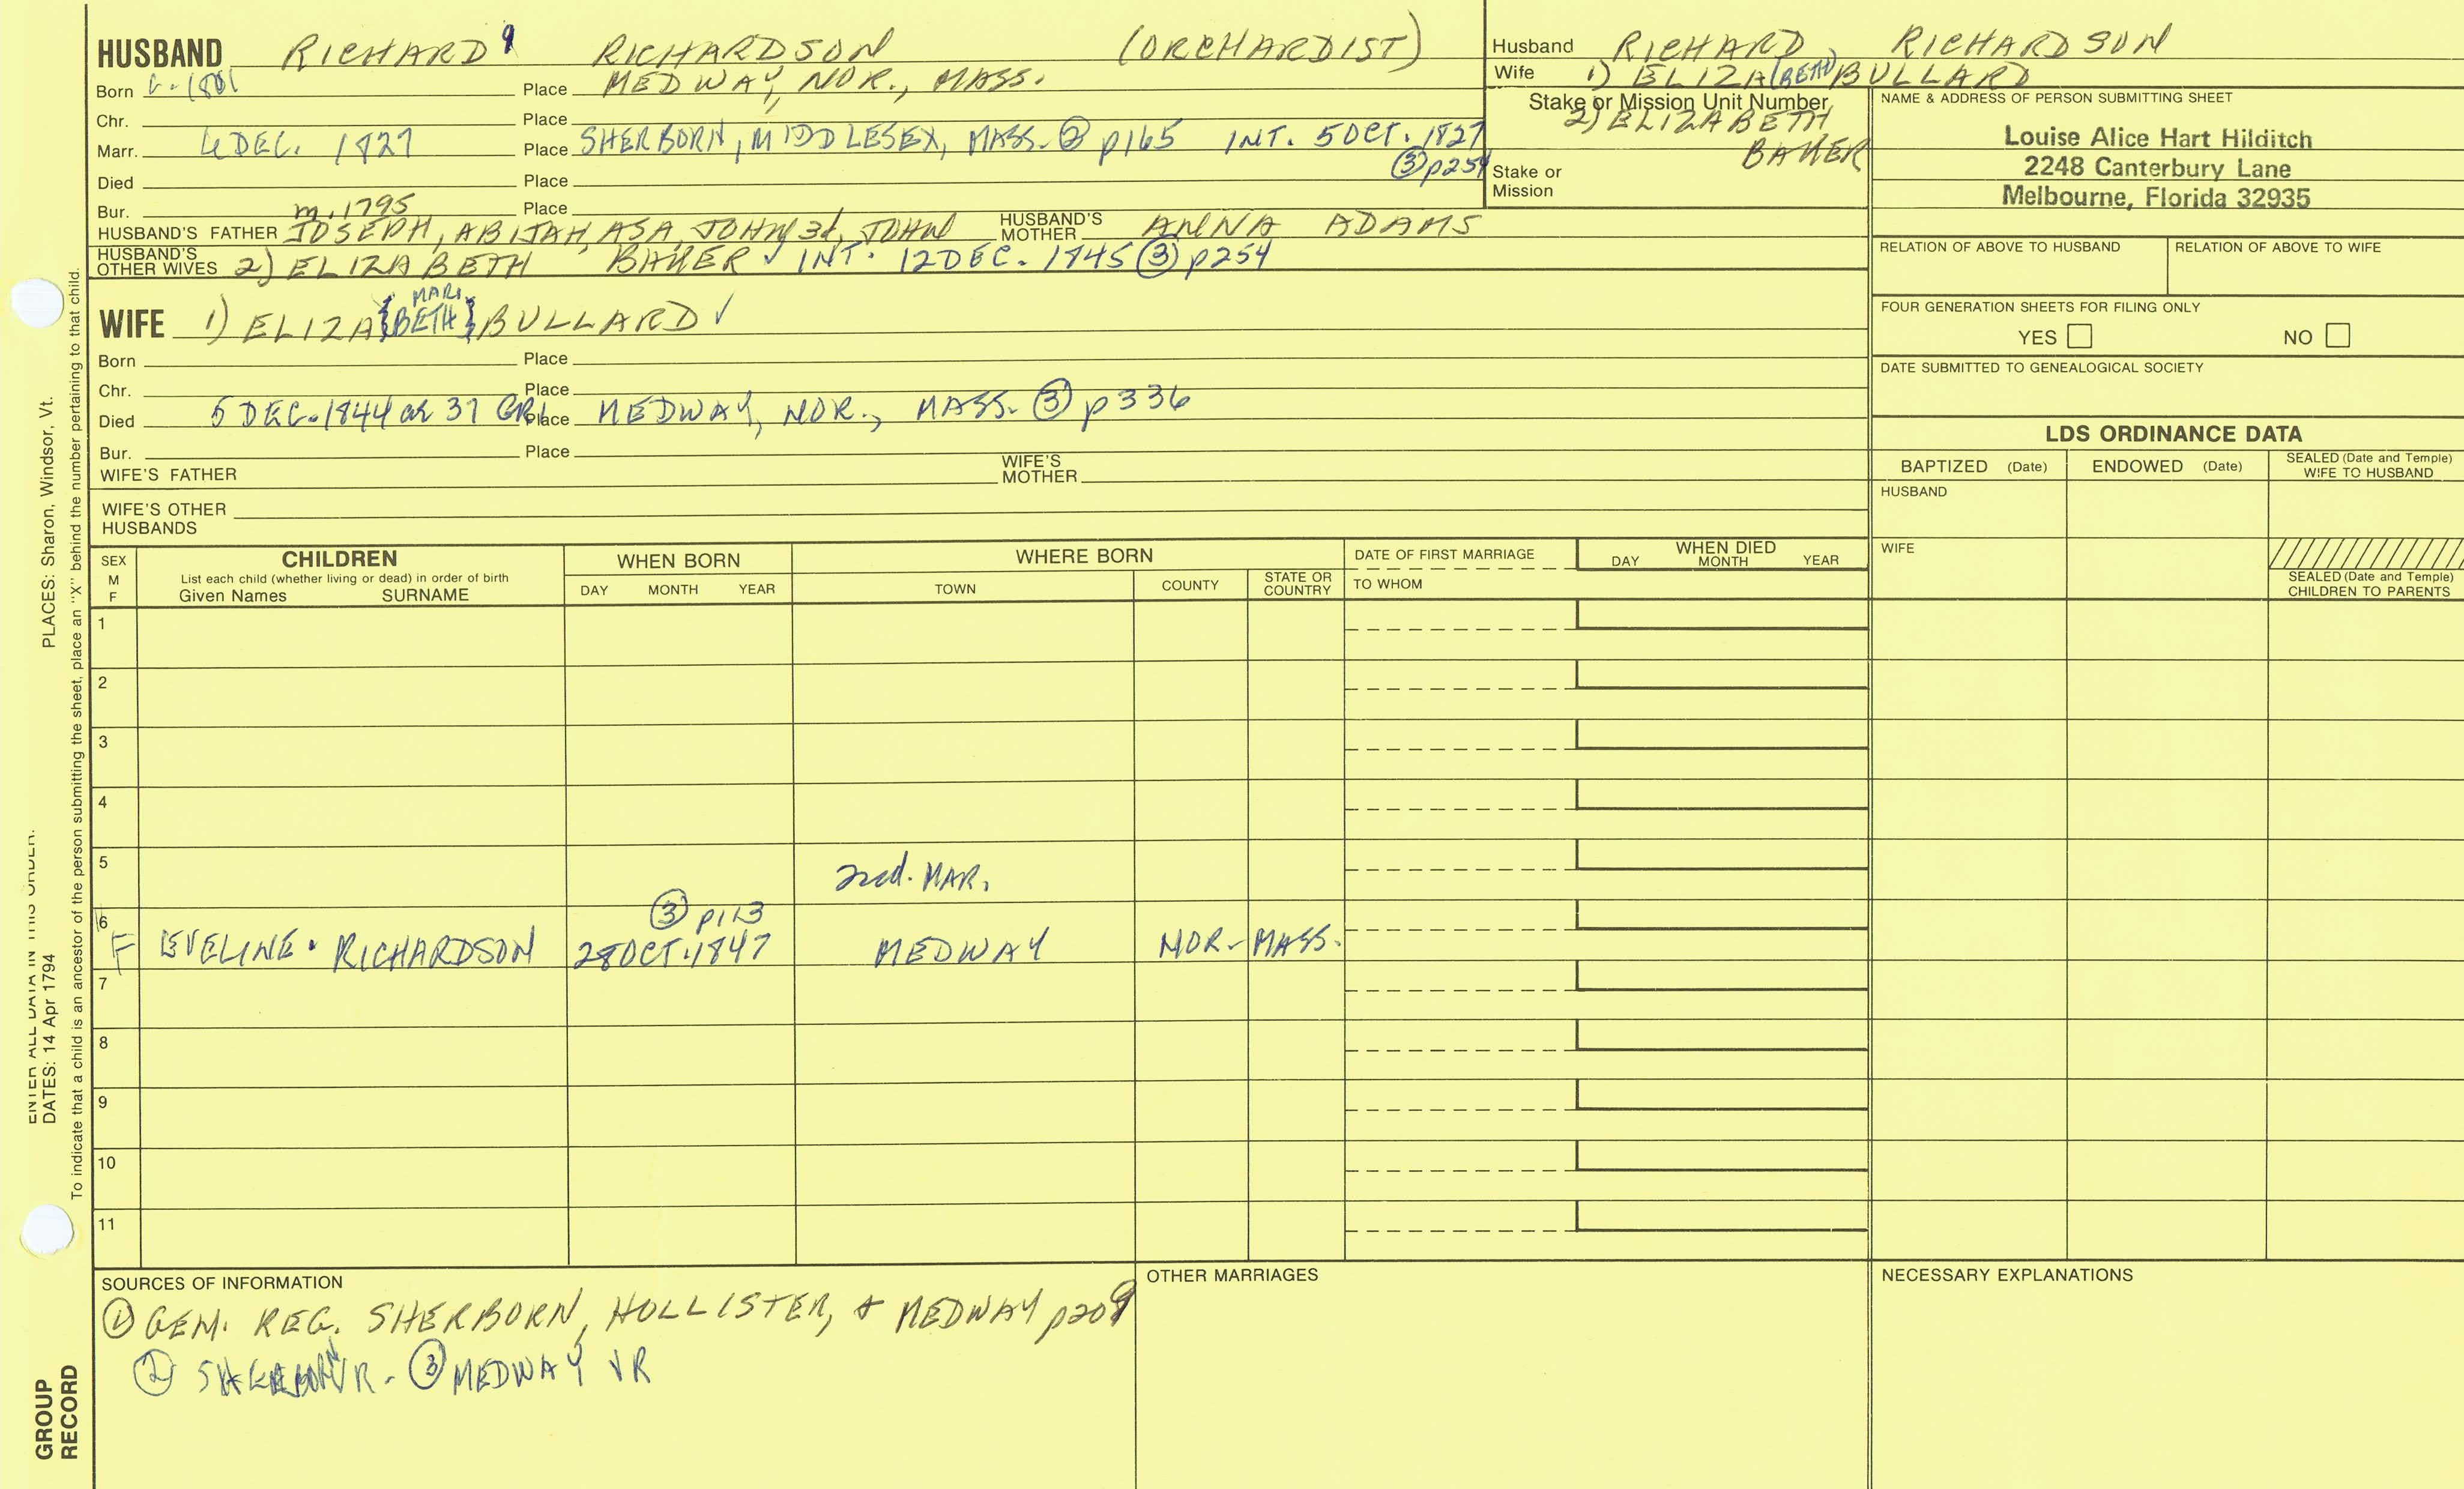 HUSBAND RICHARD 9 RICHARDSON (ORCHARDIST)
Born c. 1801 Place MEDWAY, NOR., MASS.
Chr. Place
Marr. 4 DEC. 1827 Place SHERBORN, MIDDLESEX, MASS. ② p165 INT. 5 OCT. 1827
③ p254
Died Place
Bur. Place
m. 1795
HUSBAND'S FATHER JOSEPH, ABIJAH, ASA, JOHN 3d, JOHN HUSBAND'S MOTHER ANNA ADAMS
HUSBAND'S OTHER WIVES 2) ELIZABETH BAKER ✓ INT. 12 DEC. 1845 ③ p254
MARI.
WIFE 1) ELIZA{BETH} BULLARD ✓
Born Place
Chr. Place
Died 5 DEC. 1844 ae 37 GR1 Place MEDWAY, NOR., MASS. ③ p336
Bur. Place
WIFE'S FATHER WIFE'S MOTHER
WIFE'S OTHER HUSBANDS
Husband RICHARD RICHARDSON
Wife 1) ELIZA(BETH) BULLARD
Stake or Mission Unit Number
2) ELIZABETH
BAKER
Stake or
Mission
NAME & ADDRESS OF PERSON SUBMITTING SHEET
Louise Alice Hart Hilditch
2248 Canterbury Lane
Melbourne, Florida 32935
RELATION OF ABOVE TO HUSBAND RELATION OF ABOVE TO WIFE
FOUR GENERATION SHEETS FOR FILING ONLY
YES NO
DATE SUBMITTED TO GENEALOGICAL SOCIETY
LDS ORDINANCE DATA
BAPTIZED (Date) ENDOWED (Date) SEALED (Date and Temple) WIFE TO HUSBAND
HUSBAND
WIFE
SEALED (Date and Temple)
CHILDREN TO PARENTS
SEX M F
CHILDREN
List each child (whether living or dead) in order of birth
Given Names SURNAME
WHEN BORN
DAY MONTH YEAR
WHERE BORN
TOWN COUNTY STATE OR COUNTRY
DATE OF FIRST MARRIAGE
TO WHOM
WHEN DIED
DAY MONTH YEAR
1
2
3
4
5 2nd. MAR.
6 ③ p113
F EVELINE RICHARDSON 28 OCT. 1847 MEDWAY NOR. MASS.
7
8
9
10
11
SOURCES OF INFORMATION
① GEN. REG. SHERBORN, HOLLISTER, & MEDWAY p209
② SHERBORN VR. ③ MEDWAY VR
OTHER MARRIAGES
NECESSARY EXPLANATIONS
ENTER ALL DATA IN THIS ORDER:
DATES: 14 Apr 1794 PLACES: Sharon, Windsor, Vt.
To indicate that a child is an ancestor of the person submitting the sheet, place an "X" behind the number pertaining to that child.
GROUP
RECORD